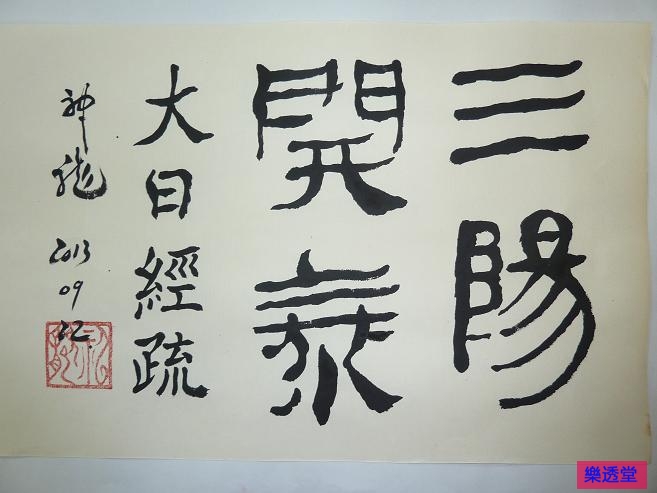 三陽
開泰
大日經疏
神龍
2013
09
樂透堂